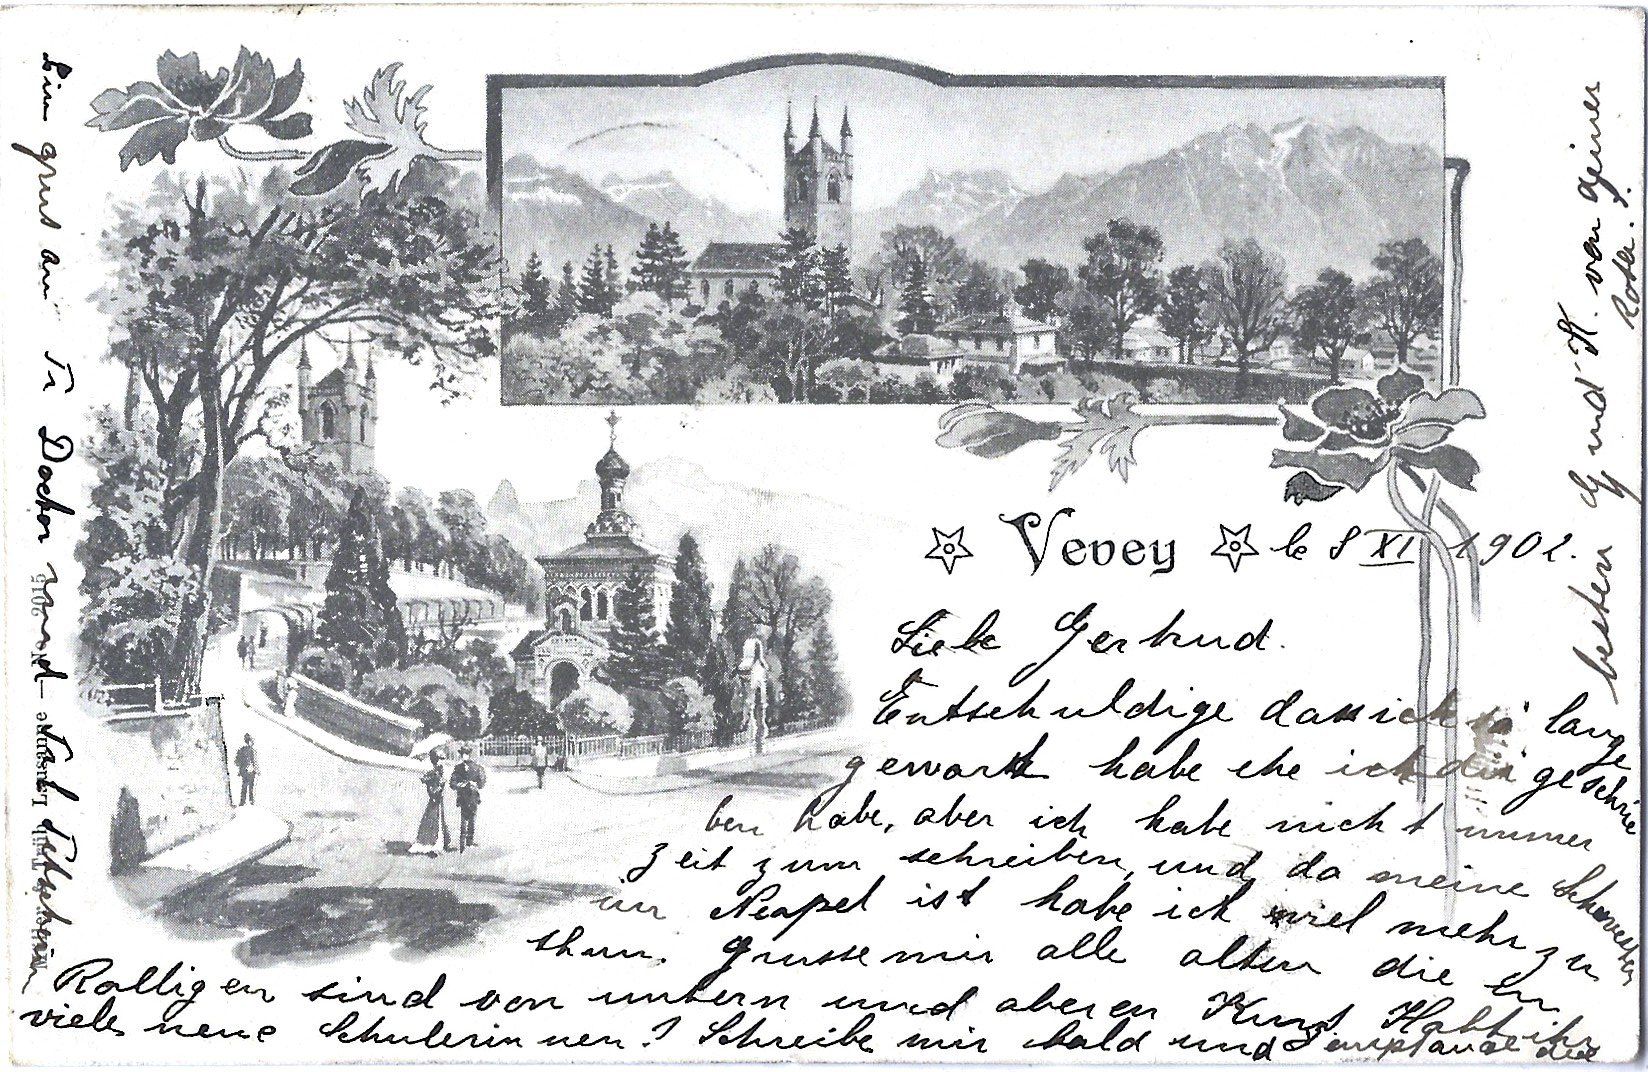 Vevey le 8 XI 1902.
Liebe Gertrud.
Entschuldige dass ich so lange
gewartet habe ehe ich dir geschrie
ben habe, aber ich habe nicht immer
zeit zum schreiben, und da meine Schwester
in Neapel ist habe ich viel mehr zu
thun. Grusse mir alle alten die in
Ralligen sind von untern und oberen Kurs. Habt ihr
viele neue Schulerinnen? Schreibe mir bald und empfange die
besten G und K. von deiner
Rosa. J.
Ein grus an Fr Doctor und